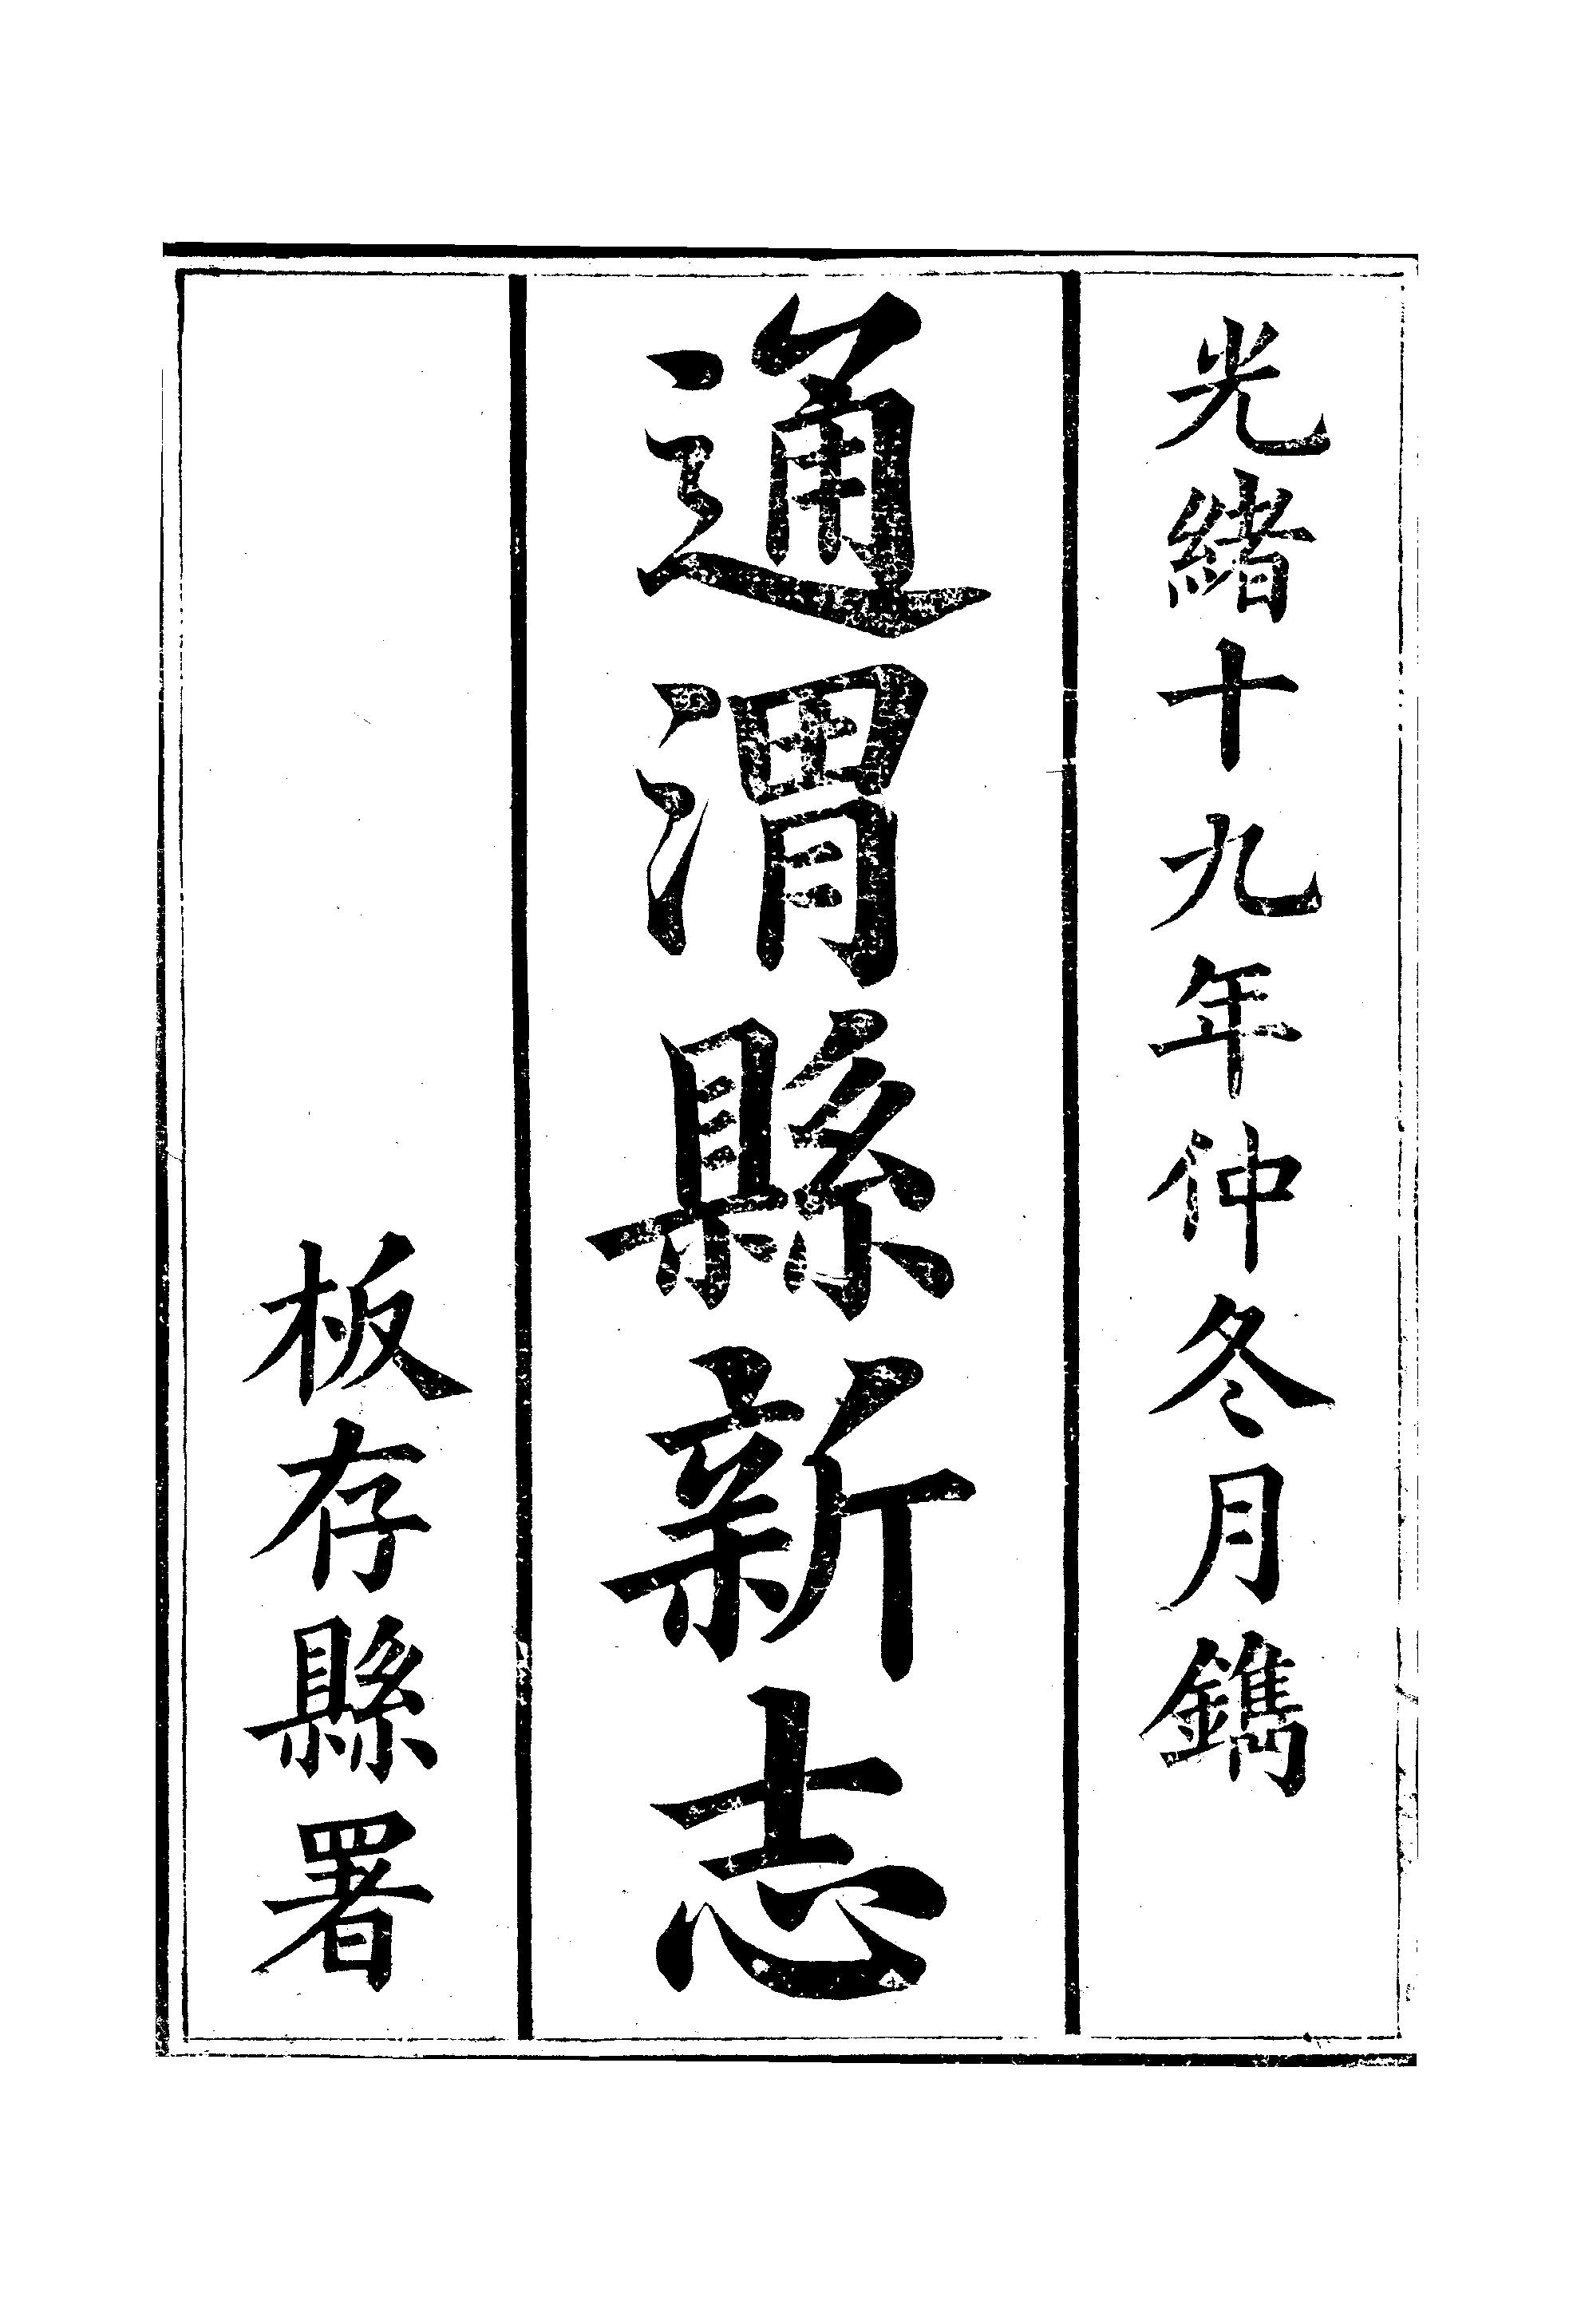 光緒十九年仲冬月鐫
通渭縣新志
板存縣署